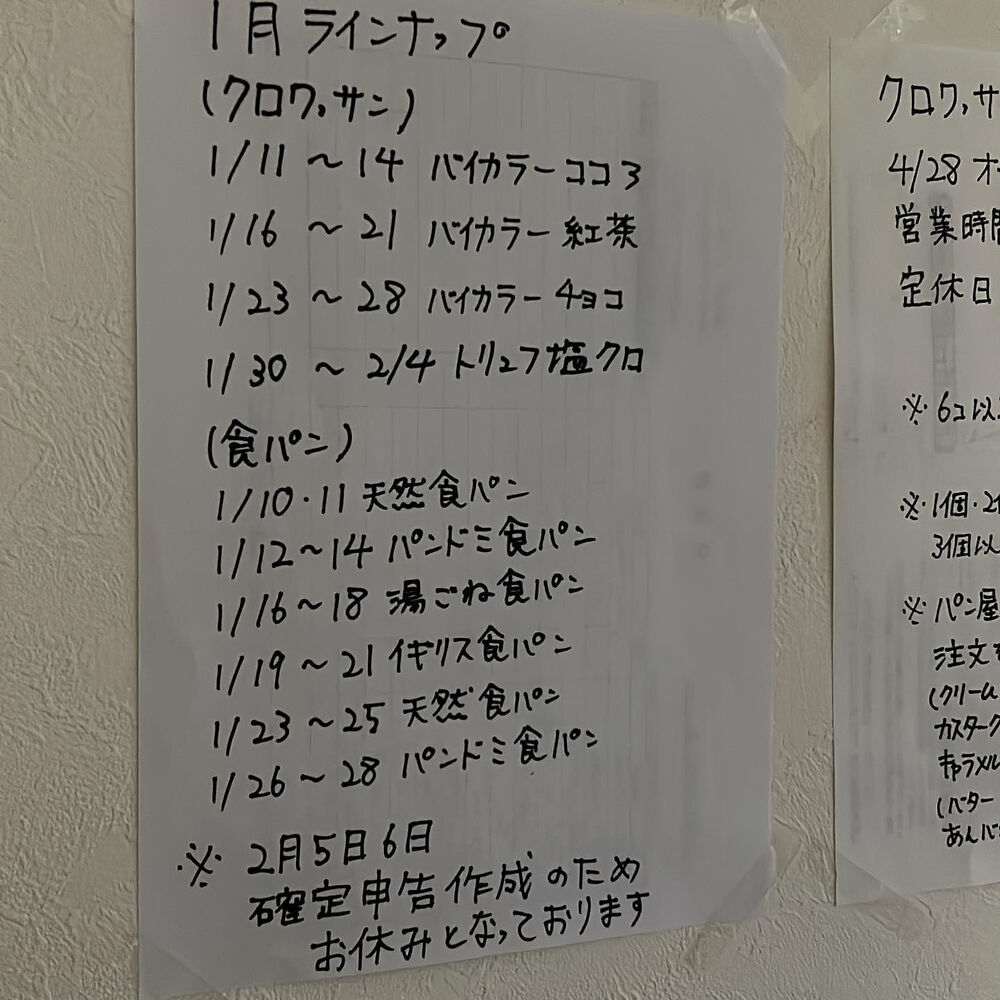 1月ラインナップ
(クロワッサン)
1/11 〜 14 バイカラーココ3
1/16 〜 21 バイカラー紅茶
1/23 〜 28 バイカラーチョコ
1/30 〜 2/4 トリュフ塩クロ
(食パン)
1/10・11 天然食パン
1/12〜14 パンドミ食パン
1/16〜18 湯ごね食パン
1/19〜21 イギリス食パン
1/23〜25 天然食パン
1/26〜28 パンドミ食パン
※ 2月5日6日
確定申告作成のため
お休みとなっております
クロワッサ
4/28 オ
営業時間
定休日
※ 6コ以
※ 1個・2
3個以
※ パン屋
注文
(クリーム
カスターク
キャラメル
(バター
あんバ